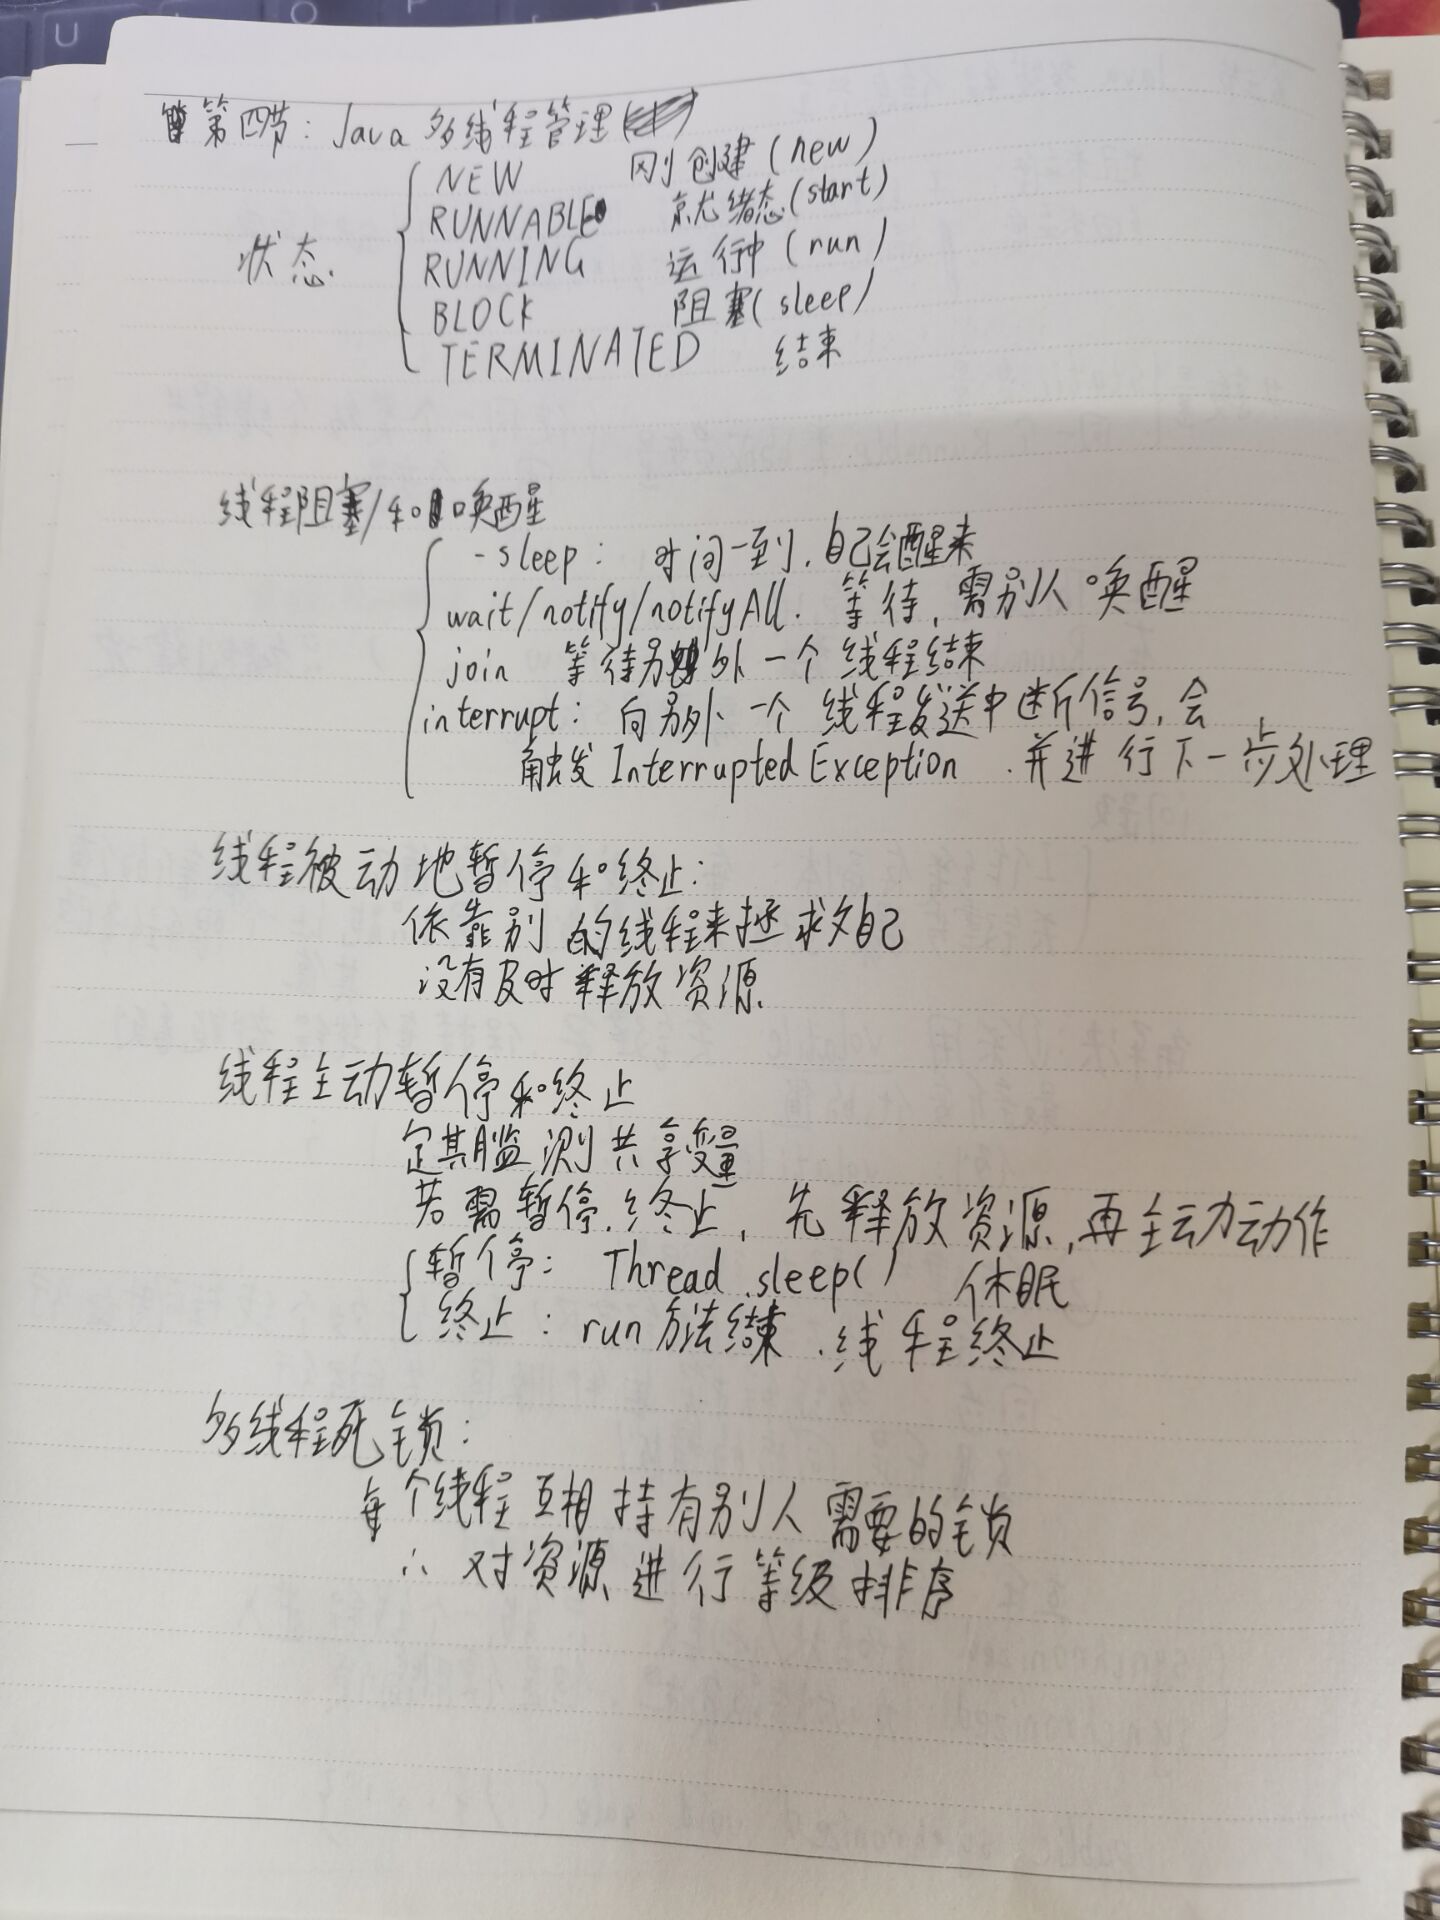 第四节: Java 多线程管理
状态
NEW 刚创建(new)
RUNNABLE 就绪态(start)
RUNNING 运行中(run)
BLOCK 阻塞(sleep)
TERMINATED 结束
线程阻塞/和唤醒
-sleep: 时间一到,自己会醒来
wait/notify/notifyAll. 等待,需别人唤醒
join 等待另外一个线程结束
interrupt: 向另外一个线程发送中断信号,会
触发InterruptedException .并进行下一步处理
线程被动地暂停和终止:
依靠别的线程来拯救自己
没有及时释放资源.
线程主动暂停和终止
定期监测共享变量
若需暂停.终止,先释放资源,再主动动作
暂停: Thread.sleep() 休眠
终止: run方法结束.线程终止
多线程死锁:
每个线程互相持有别人需要的锁
∴ 对资源进行等级排序
U
O